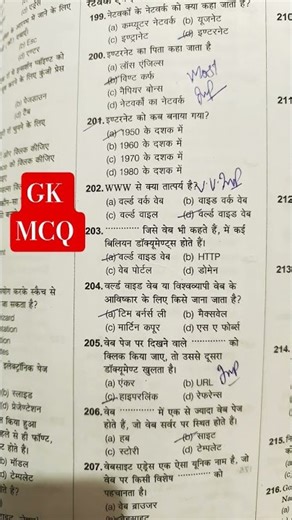 199. नेटवर्कों के नेटवर्क को क्या कहा जाता है?
(a) कम्प्यूटर नेटवर्क (b) यूजनेट
(c) इण्ट्रानेट (d) इण्टरनेट
200. इण्टरनेट का पिता कहा जाता है
(a) लॉस एंजिल्स
(b) विण्ट कर्फ
(c) नैपियर बोन्स
(d) नेटवर्कों का नेटवर्क
Most
Imp
201. इण्टरनेट को कब बनाया गया?
(a) 1950 के दशक में
(b) 1960 के दशक में
(c) 1970 के दशक में
(d) 1980 के दशक में
202. WWW से क्या तात्पर्य है? V.V.Imp
(a) वर्ल्ड वर्क वेब (b) वाइड वर्क वेब
(c) वर्ल्ड वाइल (d) वर्ल्ड वाइड वेब
203. ............ जिसे वेब भी कहते हैं, में कई
बिलियन डॉक्यूमेण्ट्स होते हैं।
(a) वर्ल्ड वाइड वेब (b) HTTP
(c) वेब पोर्टल (d) डोमेन
204. वर्ल्ड वाइड वेब या विश्वव्यापी वेब के
आविष्कार के लिए किसे जाना जाता है?
(a) टिम बर्नर्स ली (b) मैक्सवेल
(c) मार्टिन कपूर (d) एस ए फोर्ब्स
205. वेब पेज पर दिखने वाले ............ को
क्लिक किया जाए, तो उससे दूसरा
डॉक्यूमेण्ट खुलता है।
(a) एंकर (b) URL Imp
(c) हाइपरलिंक (d) रेफरेन्स
206. वेब ............ में एक से ज्यादा वेब पेज
होते हैं, जो वेब सर्वर पर स्थित होते हैं।
(a) हब (b) साइट
(c) स्टोरी (d) टेम्पलेट
207. वेबसाइट एड्रेस एक ऐसा यूनिक नाम है, जो
वेब पर किसी विशेष ............ को
पहचानता है।
(a) वेब ब्राउजर
GK
MCQ
210
211
214.
215.
216.